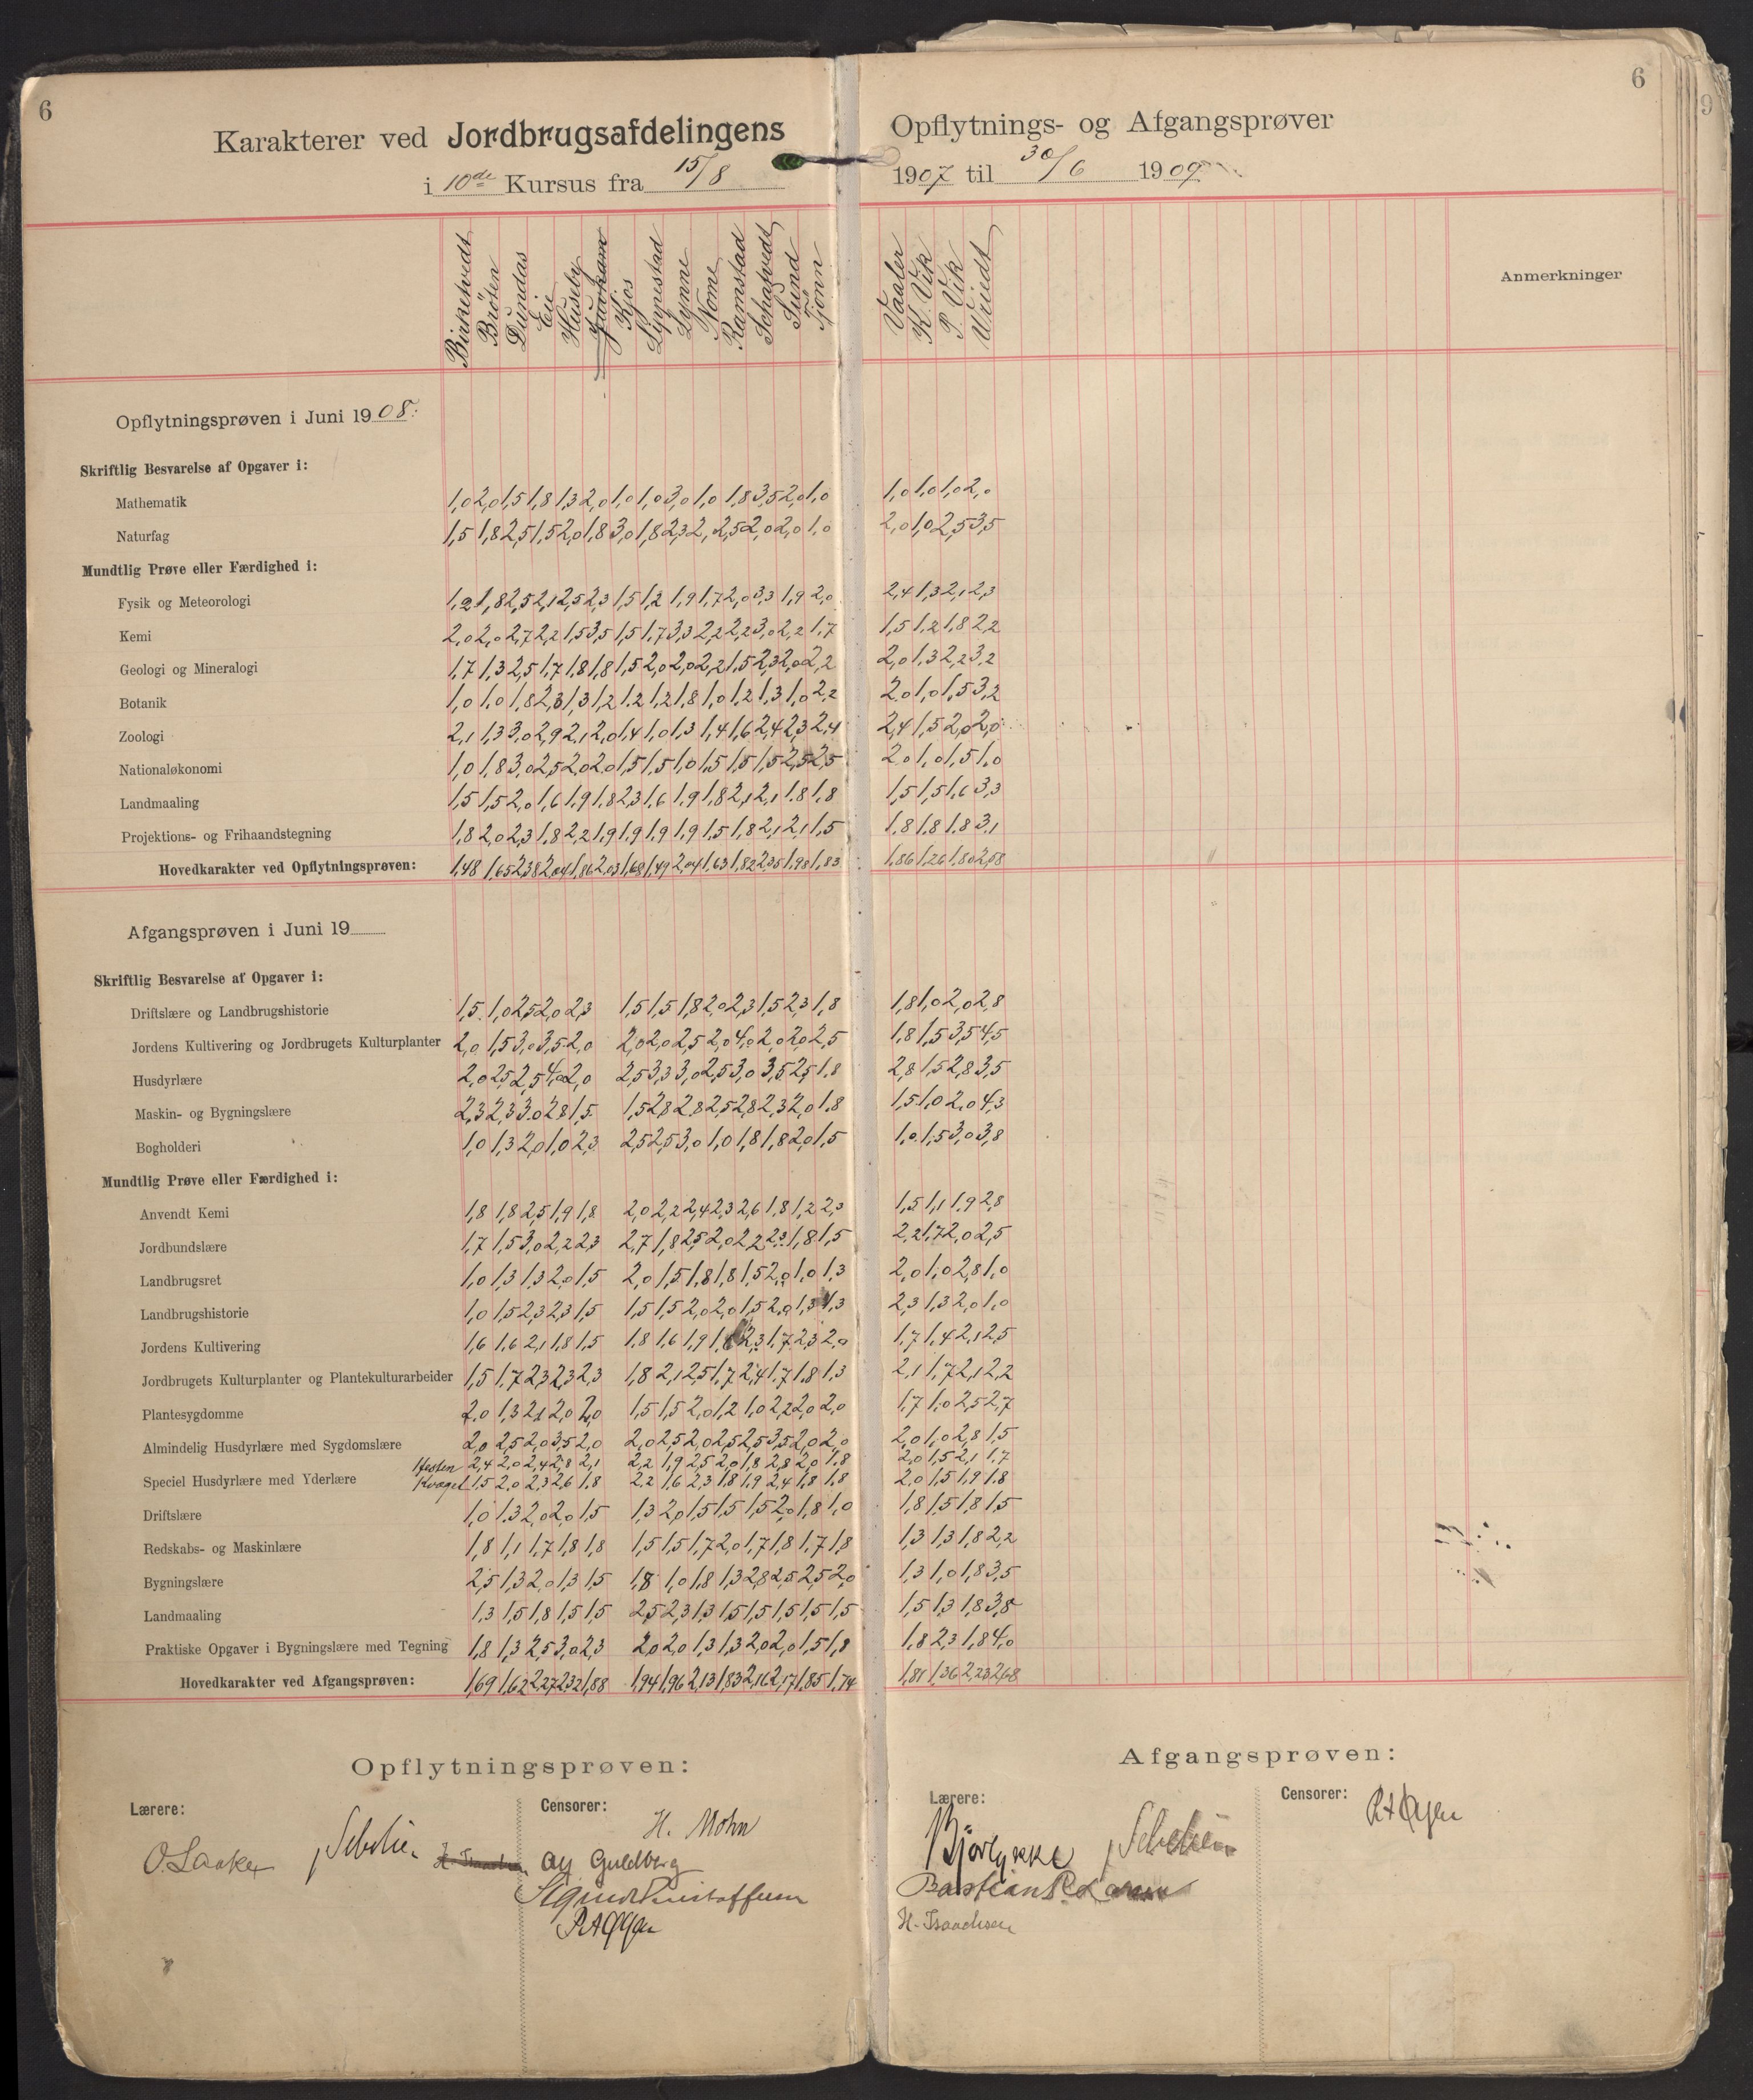 6
Karakterer ved Jordbrugsafdelingens Opflytnings- og Afgangsprøver
6
i 10de Kursus fra 15/8 1907 til 30/6 1909
Birkhvedt Bröten Dundas Eie Huseby Kjos Lyngstad Lynne Nome Ramstad Schatvedt Sund Tjönn Vaaler K. Vik P. Vik Wriedt Anmerkninger
Opflytningsprøven i Juni 1908.
Skriftlig Besvarelse af Opgaver i:
Mathematik 1,0 2,0 1,5 1,8 1,3 2,0 1,0 1,0 3,0 1,0 1,8 3,5 2,0 1,0 1,0 1,0 1,0 2,0
Naturfag 1,5 1,8 2,5 1,5 2,0 1,8 3,0 1,8 2,3 2, 2,5 2,0 2,0 1,0 2,0 1,0 2,5 3,5
Mundtlig Prøve eller Færdighed i:
Fysik og Meteorologi 1,2 1,8 2,5 2,1 2,5 2,3 1,5 1,2 1,9 1,7 2,0 3,3 1,9 2,0 2,4 1,3 2,1 2,3
Kemi 2,0 2,0 2,7 2,2 1,5 3,5 1,5 1,7 3,3 2,2 2,2 3,0 2,2 1,7 1,5 1,2 1,8 2,2
Geologi og Mineralogi 1,7 1,3 2,5 1,7 1,8 1,8 1,5 2,0 2,0 2,2 1,5 2,3 2,0 2,2 2,0 1,3 2,2 3,2
Botanik 1,0 1,0 1,8 2,3 1,3 1,2 1,2 1,2 1,8 1,0 1,2 1,3 1,0 2,2 2,0 1,0 1,5 3,2
Zoologi 2,1 1,3 3,0 2,9 2,1 2,0 1,4 1,0 1,3 1,4 1,6 2,4 2,3 2,4 2,4 1,5 2,0 2,0
Nationaløkonomi 1,0 1,8 3,0 2,5 2,0 2,0 1,5 1,5 1,0 1,5 1,5 1,5 2,5 2,5 2,0 1,0 1,5 1,0
Landmaaling 1,5 1,5 2,0 1,6 1,9 1,8 2,3 1,6 1,9 1,8 2,1 2,1 1,8 1,8 1,5 1,5 1,6 3,3
Projektions- og Frihaandstegning 1,8 2,0 2,3 1,8 2,2 1,9 1,9 1,9 1,9 1,5 1,8 2,1 2,1 1,5 1,8 1,8 1,8 3,1
Hovedkarakter ved Opflytningsprøven: 1,48 1,65 2,38 2,04 1,86 2,03 1,68 1,49 2,04 1,63 1,82 2,35 1,98 1,83 1,86 1,26 1,80 2,58
Afgangsprøven i Juni 19
Skriftlig Besvarelse af Opgaver i:
Driftslære og Landbrugshistorie 1,5 1,0 2,5 2,0 2,3 1,5 1,5 1,8 2,0 2,3 1,5 2,3 1,8 1,8 1,0 2,0 2,8
Jordens Kultivering og Jordbrugets Kulturplanter 2,0 1,5 3,0 3,5 2,0 2,0 2,0 2,5 2,0 4,0 2,0 2,0 2,5 1,8 1,5 3,5 4,5
Husdyrlære 2,0 2,5 2,5 4,0 2,0 2,5 3,3 3,0 2,5 3,0 3,5 2,5 1,8 2,8 1,5 2,8 3,5
Maskin- og Bygningslære 2,3 2,3 3,0 2,8 1,5 1,5 2,8 2,8 2,5 2,8 2,3 2,0 1,8 1,5 1,0 2,0 4,3
Bogholderi 1,0 1,3 2,0 1,0 2,3 2,5 2,5 3,0 1,0 1,8 1,8 2,0 1,5 1,0 1,5 3,0 3,8
Mundtlig Prøve eller Færdighed i:
Anvendt Kemi 1,8 1,8 2,5 1,9 1,8 2,0 2,2 2,4 2,3 2,6 1,8 1,2 2,3 1,5 1,1 1,9 2,8
Jordbundslære 1,7 1,5 3,0 2,2 2,3 2,7 1,8 2,5 2,0 2,2 2,3 1,8 1,5 2,2 1,7 2,0 2,5
Landbrugsret 1,0 1,3 1,3 2,0 1,5 2,0 1,5 1,8 1,8 1,5 2,0 1,0 1,3 2,0 1,0 2,8 1,0
Landbrugshistorie 1,0 1,5 2,3 2,3 1,5 1,5 1,5 2,0 2,0 1,5 2,0 1,3 1,3 2,3 1,3 2,0 1,0
Jordens Kultivering 1,6 1,6 2,1 1,8 1,5 1,8 1,6 1,9 2,3 1,7 2,3 2,0 1,7 1,4 2,1 2,5
Jordbrugets Kulturplanter og Plantekulturarbeider 1,5 1,7 2,3 2,3 2,3 1,8 2,1 2,5 1,7 2,4 1,7 1,8 1,3 2,1 1,7 2,1 2,2
Plantesygdomme 2,0 1,3 2,1 2,0 2,0 1,5 1,5 2,0 1,2 1,0 2,2 2,0 2,0 1,7 1,0 2,5 2,7
Almindelig Husdyrlære med Sygdomslære 2,0 2,5 2,0 3,5 2,0 2,0 2,5 2,0 2,5 2,5 3,5 2,0 2,0 2,0 1,0 2,8 1,5
Hesten 2,4 2,0 2,4 2,8 2,1 2,2 1,9 2,5 2,0 1,8 2,8 2,0 1,8 2,0 1,5 2,1 1,7
Speciel Husdyrlære med Yderlære Kvæget 1,5 2,0 2,3 2,6 1,8 2,2 1,6 2,3 1,8 1,9 2,4 1,8 1,8 2,0 1,5 1,9 1,8
Driftslære 1,0 1,3 2,0 2,0 1,5 1,3 2,0 1,5 1,5 1,5 2,0 1,8 1,0 1,8 1,5 1,8 1,5
Redskabs- og Maskinlære 1,8 1,1 1,7 1,8 1,8 1,5 1,5 1,7 2,0 1,7 1,8 1,7 1,8 1,3 1,3 1,8 2,2
Bygningslære 2,5 1,3 2,0 1,3 1,5 1,8 1,0 1,8 1,3 2,8 2,5 2,5 2,0 1,3 1,0 1,8 3,5
Landmaaling 1,3 1,5 1,8 1,5 1,5 2,5 2,3 1,3 1,5 1,5 1,5 1,5 1,5 1,5 1,3 1,8 3,8
Praktiske Opgaver i Bygningslære med Tegning 1,8 1,3 2,5 3,0 2,3 2,0 2,0 1,3 1,3 2,0 2,0 1,5 1,8 1,8 2,3 1,8 4,0
Hovedkarakter ved Afgangsprøven: 1,69 1,62 2,27 2,32 1,88 1,94 1,96 2,13 1,83 2,16 2,17 1,85 1,74 1,81 1,36 2,23 2,68
Opflytningsprøven:
Lærere:
Censorer:
H. Mohn
Sebelien
Ax Guldberg
Afgangsprøven:
Lærere:
Censorer:
Bjørlykke Sebelien
Bastian R. Larsen
H. Isaachsen